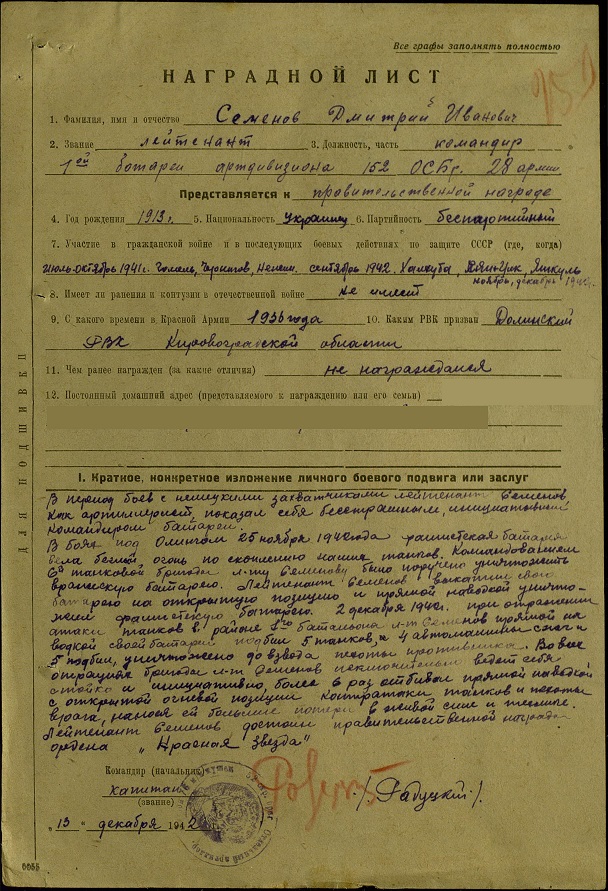 Все графы заполнять полностью
НАГРАДНОЙ ЛИСТ
1. Фамилия, имя и отчество Семенов Дмитрий Иванович
2. Звание лейтенант 3. Должность, часть командир
1ой батареи артдивизиона 152 ОСБр. 28 армии
Представляется к правительственной награде
4. Год рождения 1913г. 5. Национальность украинец 6. Партийность беспартийный
7. Участие в гражданской войне и в последующих боевых действиях по защите СССР (где, когда)
июль-октябрь 1941г. Гомель, Чернигов, сентябрь 1942 Халхута, Яшкуль
ноябрь, декабрь 1942г.
8. Имеет ли ранения и контузии в отечественной войне не имеет
9. С какого времени в Красной Армии 1936 года 10. Каким РВК призван Долинский
РВК Кировоградской области
11. Чем ранее награжден (за какие отличия) не награждался
12. Постоянный домашний адрес (представляемого к награждению или его семьи)
ДЛЯ ПОДШИВКИ
I. Краткое, конкретное изложение личного боевого подвига или заслуг
В период боев с немецкими захватчиками лейтенант Семенов
как артиллерист, показал себя бесстрашным, инициативным
командиром батареи.
В боях под Олингом 25 ноября 1942 года фашистская батарея
вела беглый огонь по скоплению наших танков. Командованием
6й танковой бригады л-ту Семенову было поручено уничтожить
вражескую батарею. Лейтенант Семенов выкатив свою
батарею на открытую позицию и прямой наводкой уничто-
жил фашистскую батарею. 2 декабря 1942г. при отражении
атаки танков в районе батальона л-т Семенов прямой на
водкой своей батареи подбил 5 танков, и 4 автомашины сжег и
5 подбил, уничтожено до взвода пехоты противника. Во всех
операциях бригады л-т Семенов исключительно ведет себя
стойко и инициативно, более 6 раз отбивал прямой наводкой
с открытой огневой позиции контратаки танков и пехоты
врага, нанося ей большие потери в живой силе и технике.
Лейтенант Семенов достоин правительственной награды
ордена "Красная звезда"
Командир (начальник)
капитан /Рабуцкий/.
(звание)
"13" декабря 1942 г.